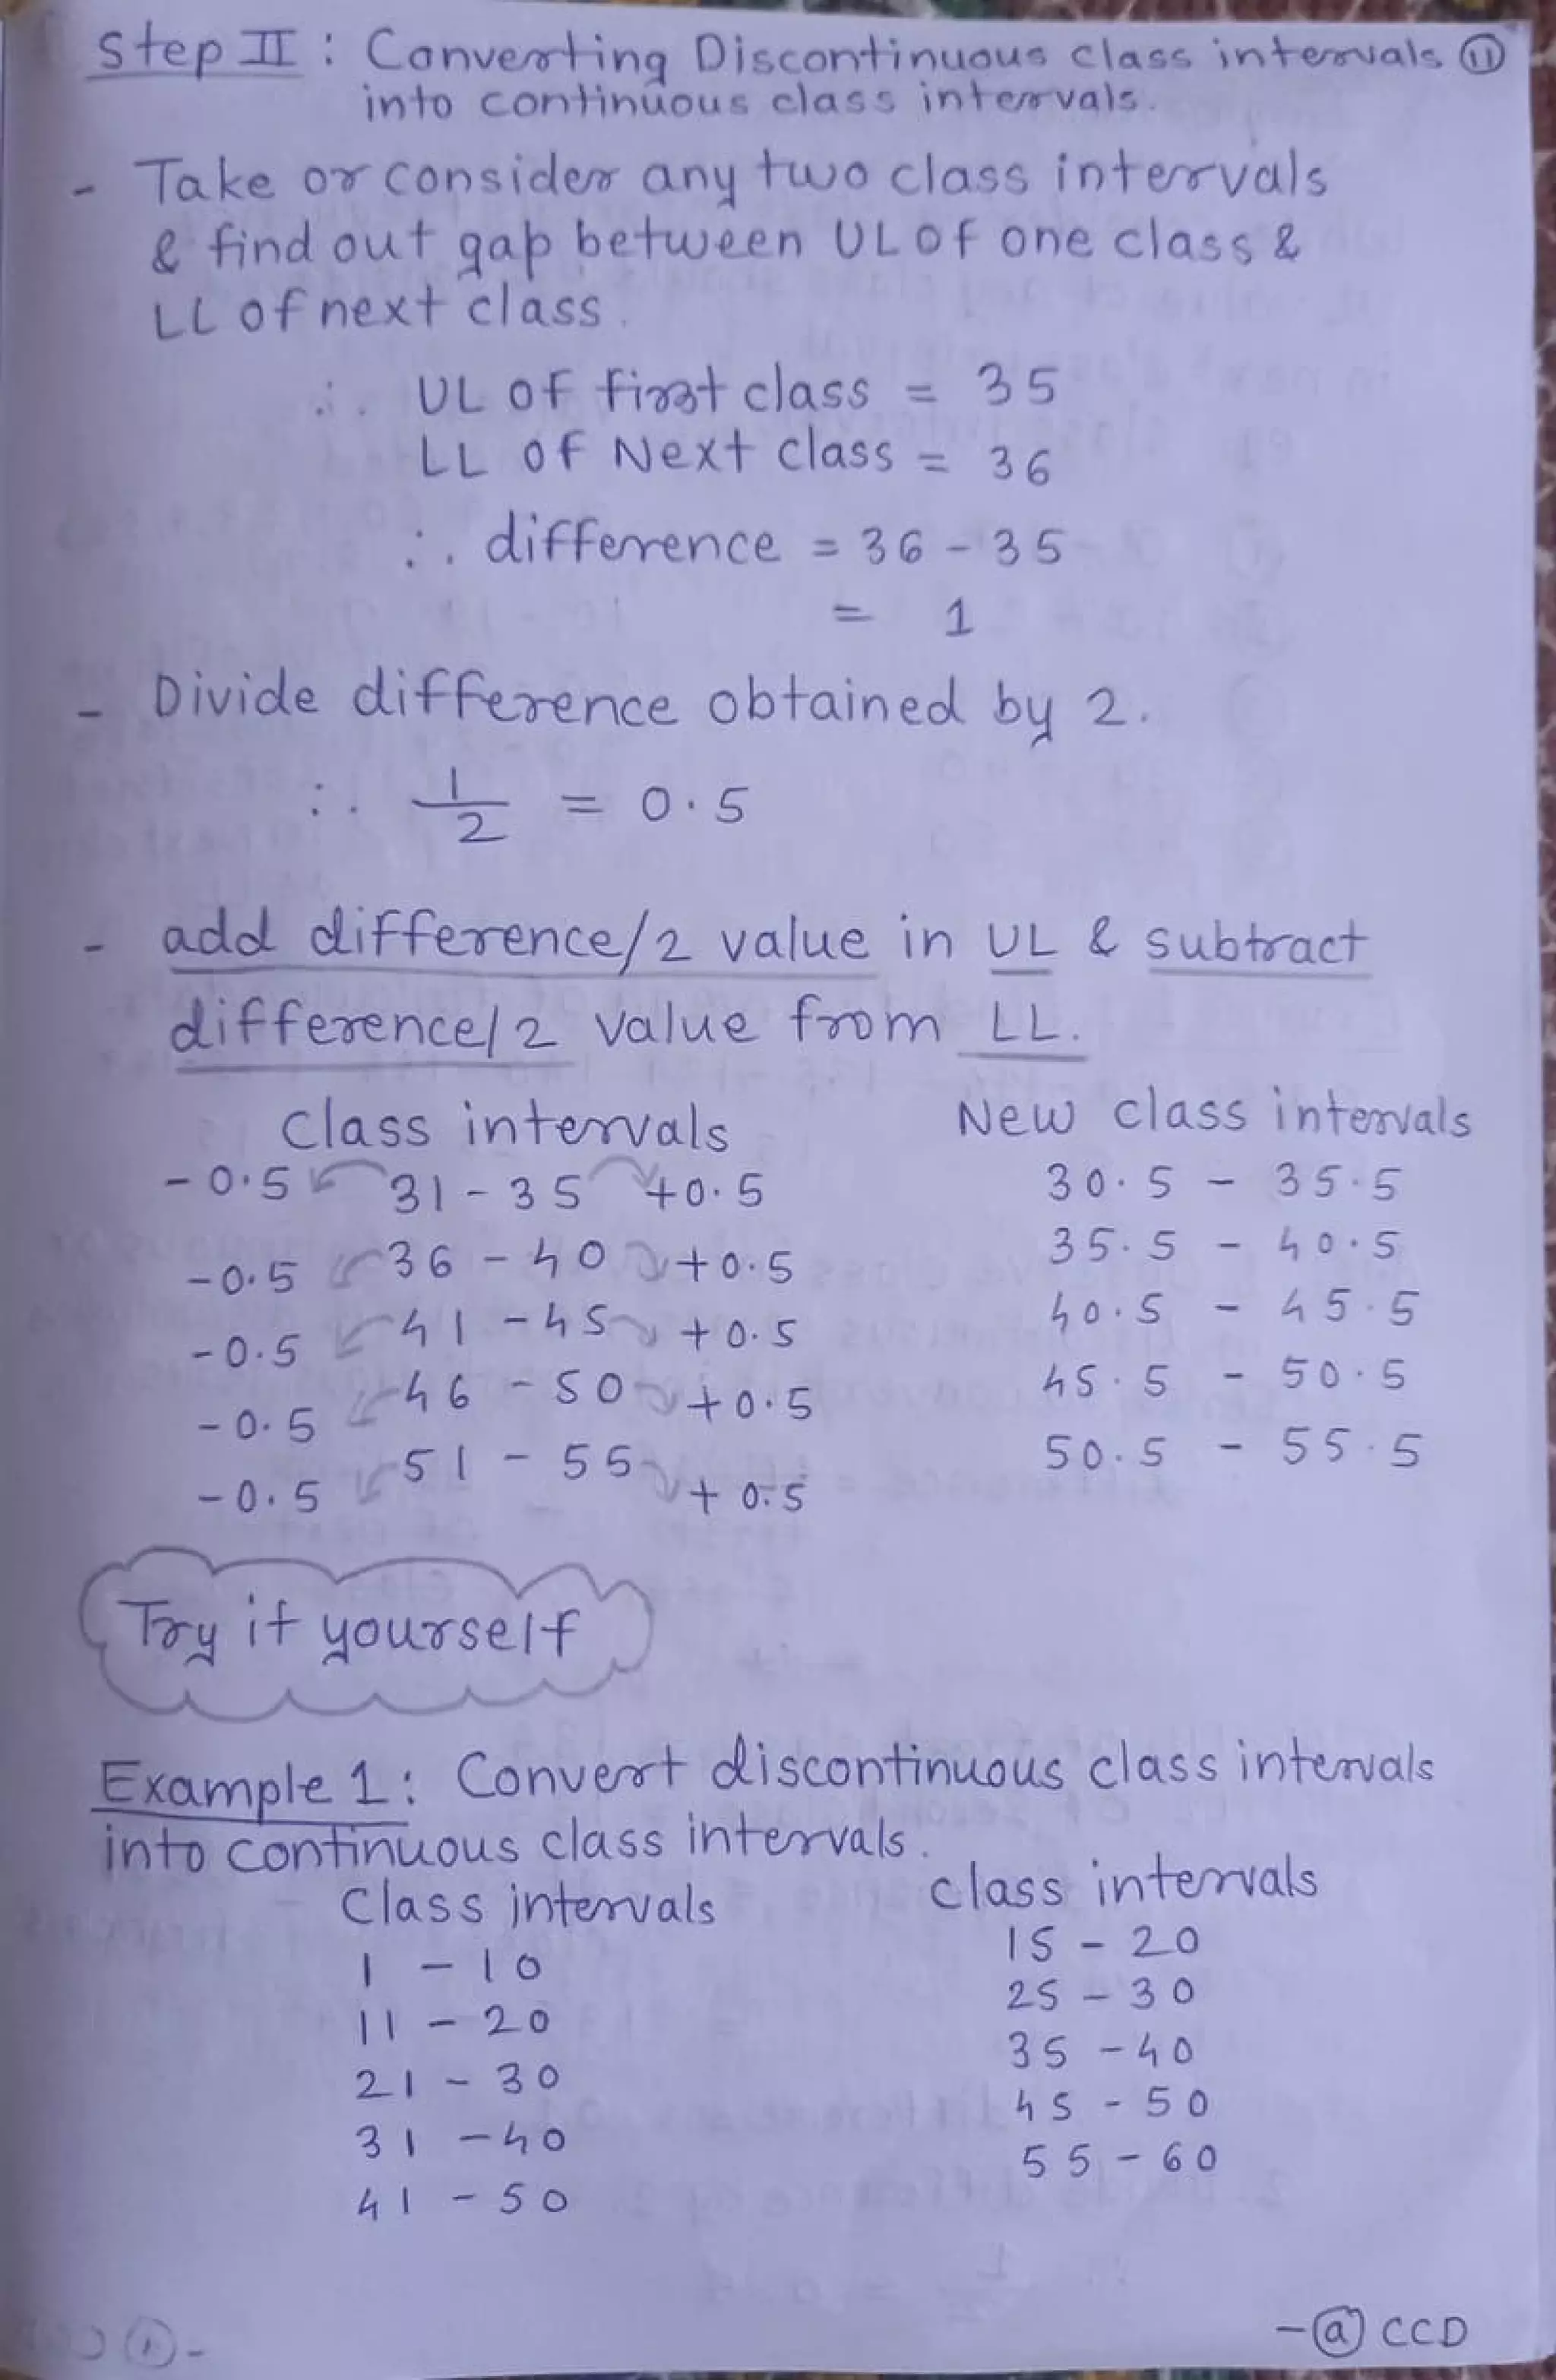 Step II : Converting Discontinuous class intervals 11
into continuous class intervals.
- Take or consider any two class intervals
& find out gap between UL of one class &
LL of next class.
∴ UL of first class = 35
LL of Next class = 36
∴ difference = 36 - 35
= 1
- Divide difference obtained by 2.
∴ 1/2 = 0.5
- add difference/2 value in UL & subtract
difference/2 value from LL.
Class intervals
New class intervals
-0.5 31 - 35 +0.5
30.5 - 35.5
-0.5 36 - 40 +0.5
35.5 - 40.5
-0.5 41 - 45 +0.5
40.5 - 45.5
-0.5 46 - 50 +0.5
45.5 - 50.5
-0.5 51 - 55 +0.5
50.5 - 55.5
Try it yourself
Example 1: Convert discontinuous class intervals
into continuous class intervals.
Class intervals
1 - 10
11 - 20
21 - 30
31 - 40
41 - 50
class intervals
15 - 20
25 - 30
35 - 40
45 - 50
55 - 60
- @ CCD